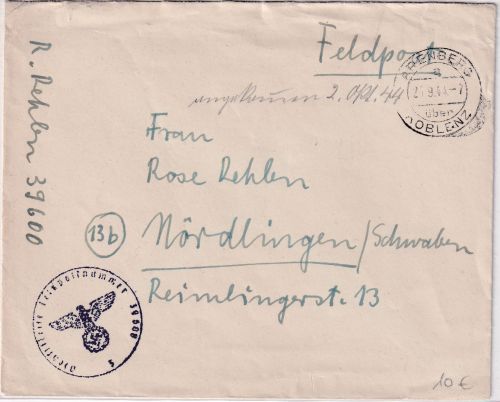 R. Rehlen 39600
Feldpost
ARENBERG
a
über
KOBLENZ
angekommen 2. Okt. 44
Frau
Rose Rehlen
13b
Nördlingen/Schwaben
Reimlingerstr. 13
Feldpostnummer 39600
10 €